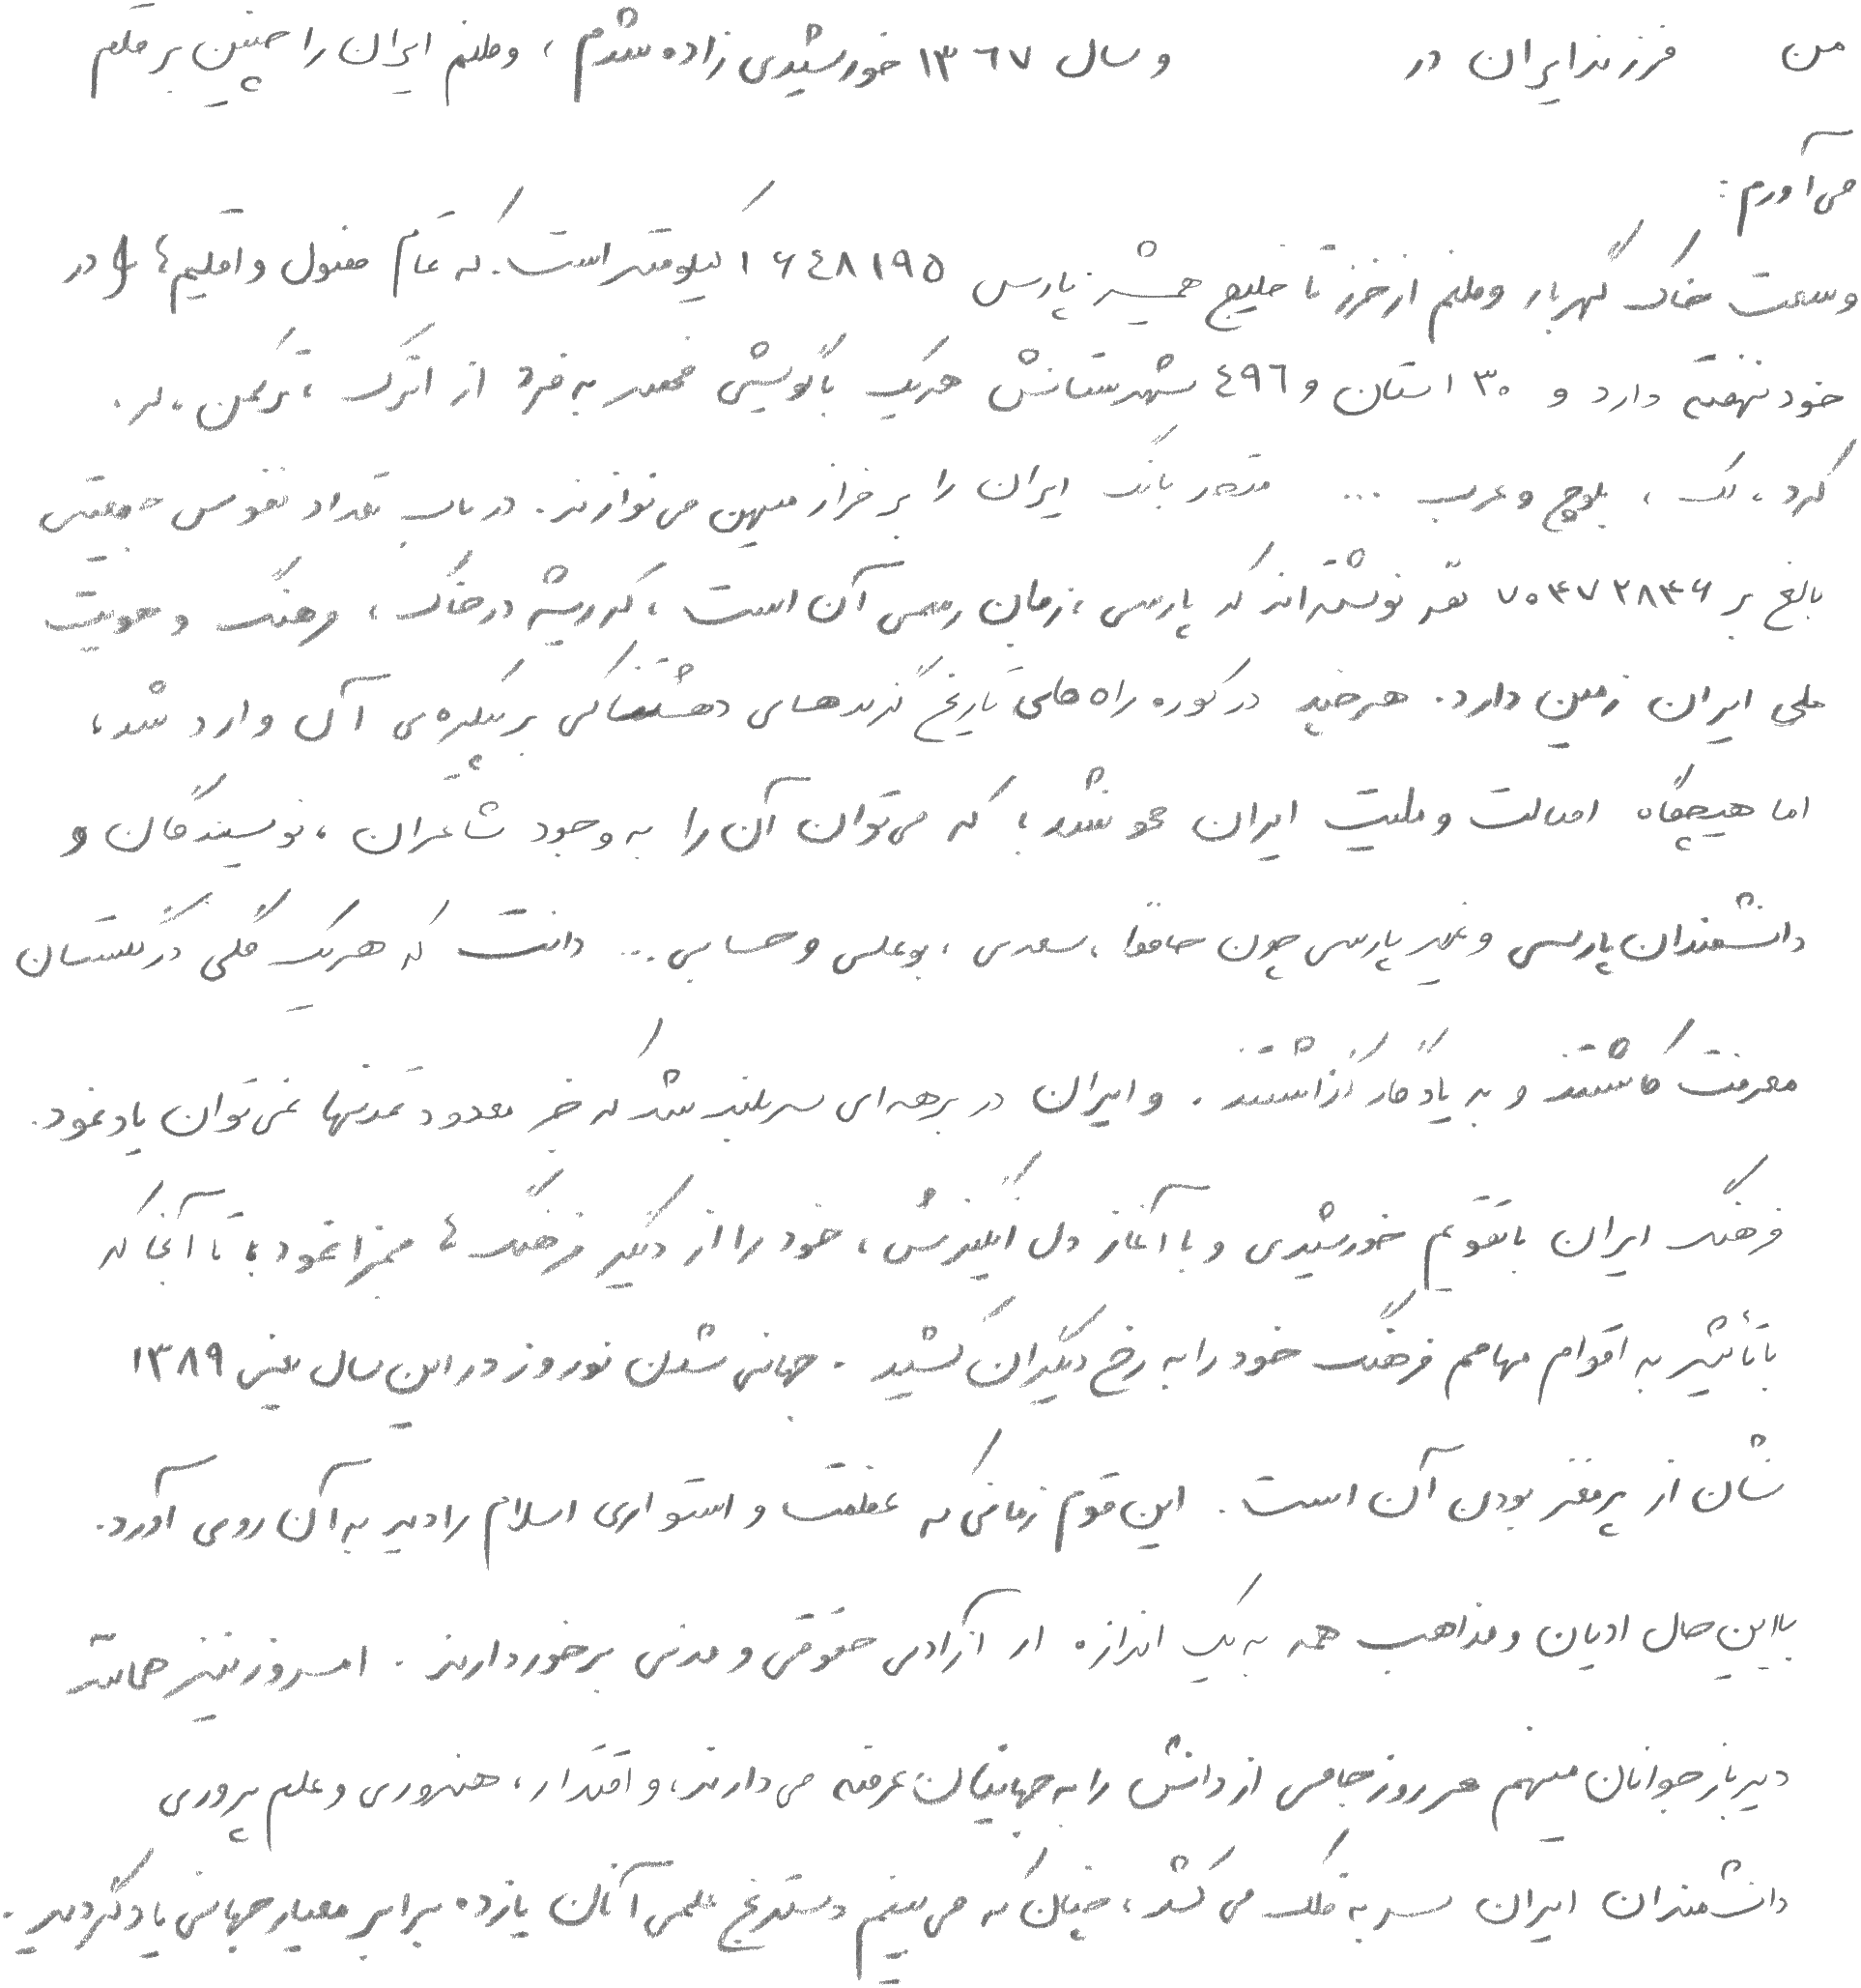 من فرزند ایران در و سال ۱۳٦۷ خورشیدی زاده شدم ، وطنم ایران را چنین بر قلم
می‌آورم :
وسعت خاک گهربار وطنم از خزر تا خلیج همیشه پارس ۱۶٤۸۱۹۵ کیلومتر است. که تمام فصول و اقلیم‌ها را در
خود نهفته دارد و ۳۰ استان و ٤۹٦ شهرستانش هریک با گویشی منحصر به فرد از ترک ، ترکمن ، لر ،
کرد ، لک ، بلوچ و عرب ... متحد بانگ ایران را بر فراز میهن می‌نوازند. در باب تعداد نفوس جمعیتی
بالغ بر ۷۰۴۷۲۸۴۶ نفر نوشته‌اند که پارسی ، زبان رسمی آن است ، که ریشه در خاک ، فرهنگ و هویت
ملی ایران زمین دارد. هرچند در کوره راه‌های تاریخ گزندهای دهشتناکی بر پیکره‌ی آن وارد شد ،
اما هیچگاه اصالت و ملیت ایران محو نشد ؛ که می‌توان آن را به وجود شاعران ، نویسندگان و
دانشمندان پارسی و غیر پارسی چون حافظ ، سعدی ، بوعلی و حسابی ... دانست که هر یک گلی در گلستان
معرفت کاشتند و به یادگار گذاشتند . و ایران در برهه‌ای سربلند شد که جز معدود تمدنها نمی‌توان یاد نمود.
فرهنگ ایران با تقویم خورشیدی و با آغاز دل انگیزش ، خود را از دیگر فرهنگ ها مجزا نمود ؛ تا آنجا که
با تأثیر به اقوام مهاجم فرهنگ خود را به رخ دیگران کشید . جهانی شدن نوروز در این سال یعنی ۱۳۸۹
نشان از پرمغز بودن آن است . این قوم زمانی که عظمت و استواری اسلام را دید به آن روی آورد.
با این حال ادیان و مذاهب همه به یک اندازه از آزادی حقوقی و مدنی برخوردارند . امروز نیز همانند
دیرباز جوانان میهنم هر روز جامی از دانش را به جهانیان عرضه می‌دارند ، و اقتدار ، هنروری و علم پروری
دانشمندان ایران سر به فلک می‌کشد ، چنان که می‌بینیم دسترنج علمی آنان یازده برابر معیار جهانی یاد گردید .